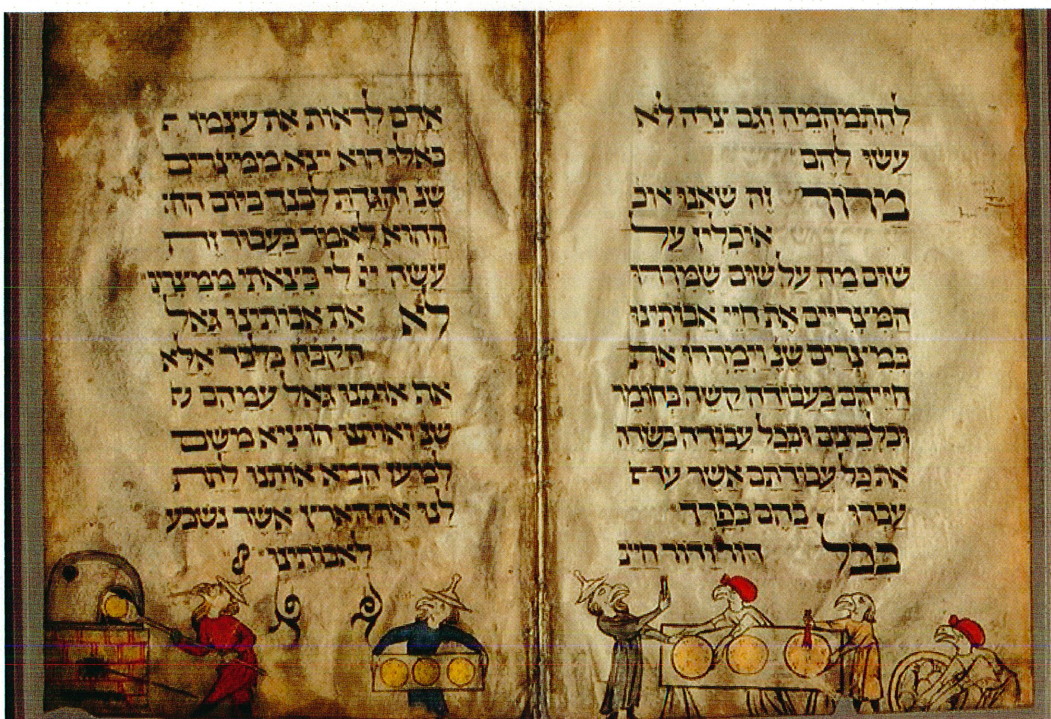 להתמהמיה וגם צדה לא
עשו להם
מרור זה שאנו אוכ
אוכלין על
שום מה על שום שמררו
המצריים את חיי אבותינו
במצרים שנ וימררו את
חייהם בעבודה קשה בחומר
ובלבנים ובכל עבודה בשדה
את כל עבודתם אשר
עבדו בהם בפרך
בכל דור ודור חייב
אדם לראות את עצמו
כאלו הוא יצא ממצרים
שנ והגדת לבנך ביום הה
ההוא לאמר בעבור זה
עשה לי בצאתי ממצרים
לא את אבותינו גאל
הקבה בלבד אלא
אף אותנו גאל עמהם
שנ ואותנו הוציא משם
למען הביא אותנו לתת
לנו את הארץ אשר נשבע
לאבותינו